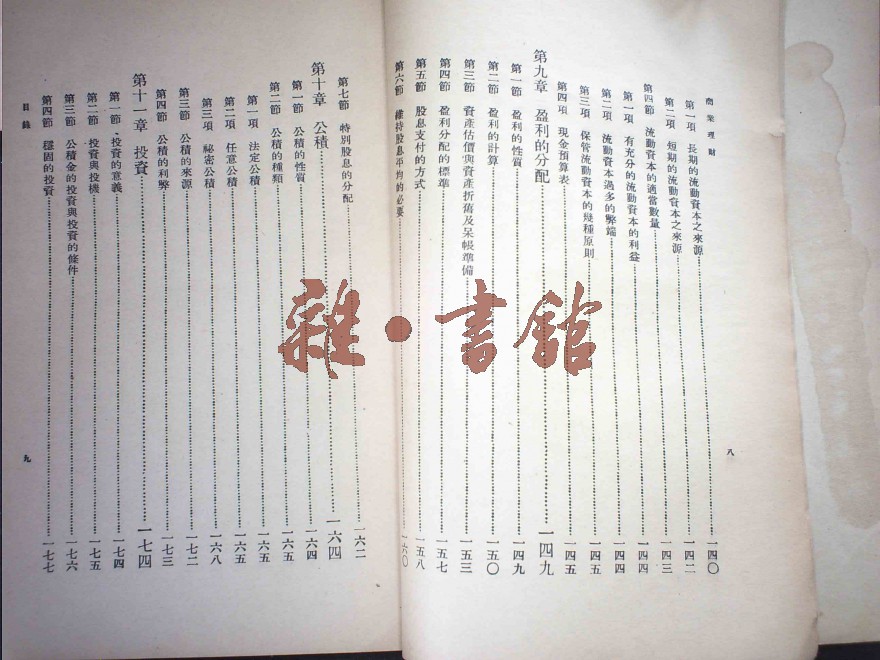 商業理財
八
第一項 長期的流動資本之來源……一四〇
第二項 短期的流動資本之來源……一四二
第四節 流動資本的適當數量……一四三
第一項 有充分的流動資本的利益……一四四
第二項 流動資本過多的弊端……一四四
第三項 保管流動資本的幾種原則……一四五
第四項 現金預算表……一四五
第九章 盈利的分配……一四九
第一節 盈利的性質……一四九
第二節 盈利的計算……一五〇
第三節 資產估價與資產折舊及呆帳準備……一五三
第四節 盈利分配的標準……一五七
第五節 股息支付的方式……一五八
第六節 維持股息平均的必要……一六〇
第七節 特別股息的分配……一六二
第十章 公積……一六四
第一節 公積的性質……一六四
第二節 公積的種類……一六五
第一項 法定公積……一六五
第二項 任意公積……一六五
第三項 祕密公積……一六八
第三節 公積的來源……一七二
第四節 公積的利弊……一七三
第十一章 投資……一七四
第一節 投資的意義……一七四
第二節 投資與投機……一七五
第三節 公積金的投資與投資的條件……一七六
第四節 穩固的投資……一七七
目錄
九
雜·書館